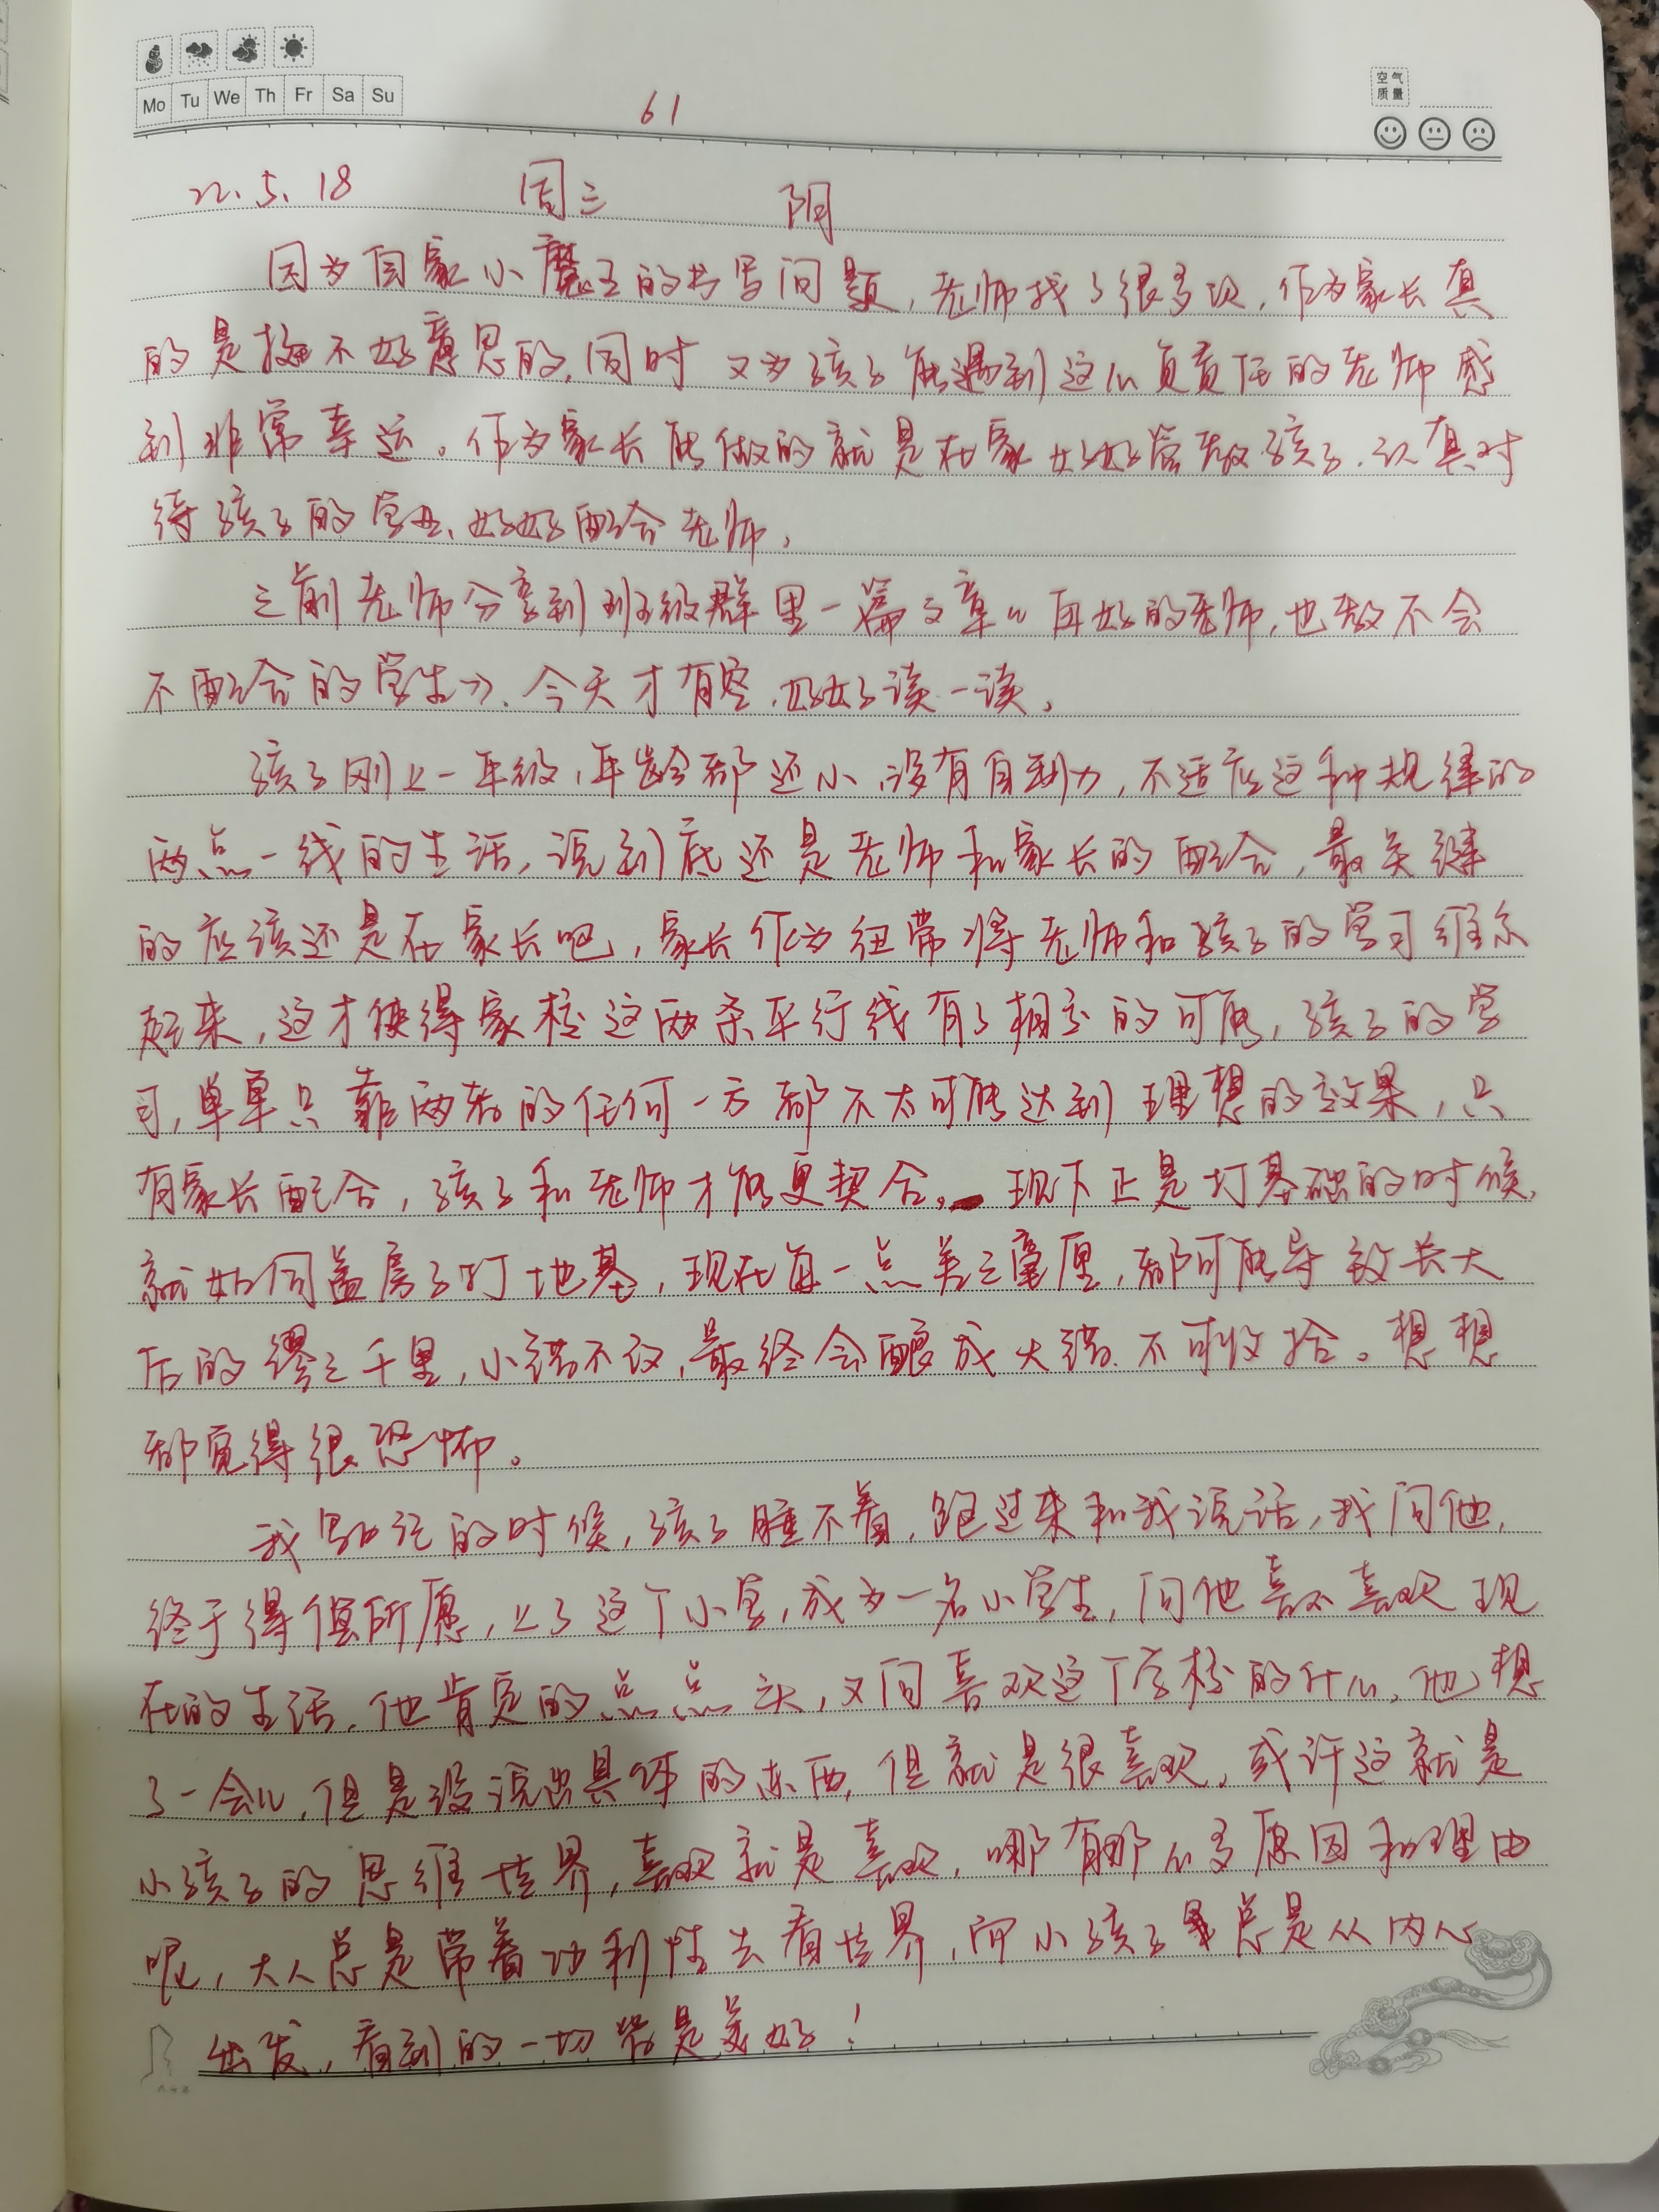 Mo Tu We Th Fr Sa Su
61
空气
质量
22.5.18 周三 阴
因为自家小魔王的书写问题,老师找了很多次,作为家长真
的是挺不好意思的,同时又为孩子能遇到这么负责任的老师感
到非常幸运。作为家长能做的就是在家好好管教孩子,认真对
待孩子的学业,好好配合老师。
之前老师分享到班级群里一篇文章《再好的老师,也教不会
不配合的学生》,今天才有空,好好读一读。
孩子刚上一年级,年龄都还小,没有自制力,不适应这种规律的
两点一线的生活,说到底还是老师和家长的配合,最关键
的应该还是在家长吧,家长作为纽带将老师和孩子的学习维系
起来,这才使得家校这两条平行线有了相交的可能,孩子的学
习,单单只靠两者的任何一方都不太可能达到理想的效果,只
有家长配合,孩子和老师才能更契合。现下正是打基础的时候,
就如同盖房子打地基,现在每一点差之毫厘,都可能导致长大
后的缪之千里,小错不改,最终会酿成大错,不可收拾。想想
都觉得很恐怖。
我写日记的时候,孩子睡不着,跑过来和我说话,我问他,
终于得偿所愿,上了这个小学,成为一名小学生,问他喜不喜欢现
在的生活,他肯定的点点头,又问喜欢这个学校的什么,他想
了一会儿,但是没说出具体的东西,但就是很喜欢,或许这就是
小孩子的思维世界,喜欢就是喜欢,哪有那么多原因和理由
呢,大人总是带着功利性去看世界,而小孩子总是从内心
出发,看到的一切皆是美好!